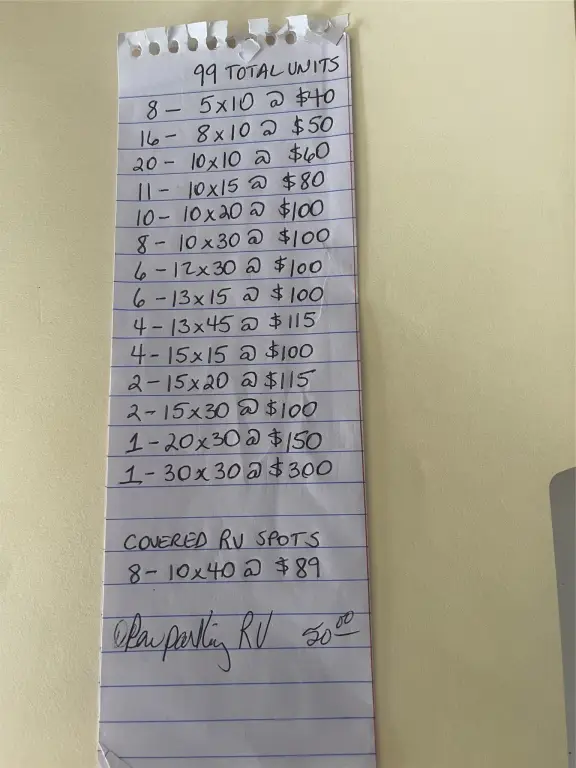 99 TOTAL UNITS
8 - 5x10 @ $40
16 - 8x10 @ $50
20 - 10x10 @ $60
11 - 10x15 @ $80
10 - 10x20 @ $100
8 - 10x30 @ $100
6 - 12x30 @ $100
6 - 13x15 @ $100
4 - 13x45 @ $115
4 - 15x15 @ $100
2 - 15x20 @ $115
2 - 15x30 @ $100
1 - 20x30 @ $150
1 - 30x30 @ $300
COVERED RV SPOTS
8 - 10x40 @ $89
parking RV 50.00